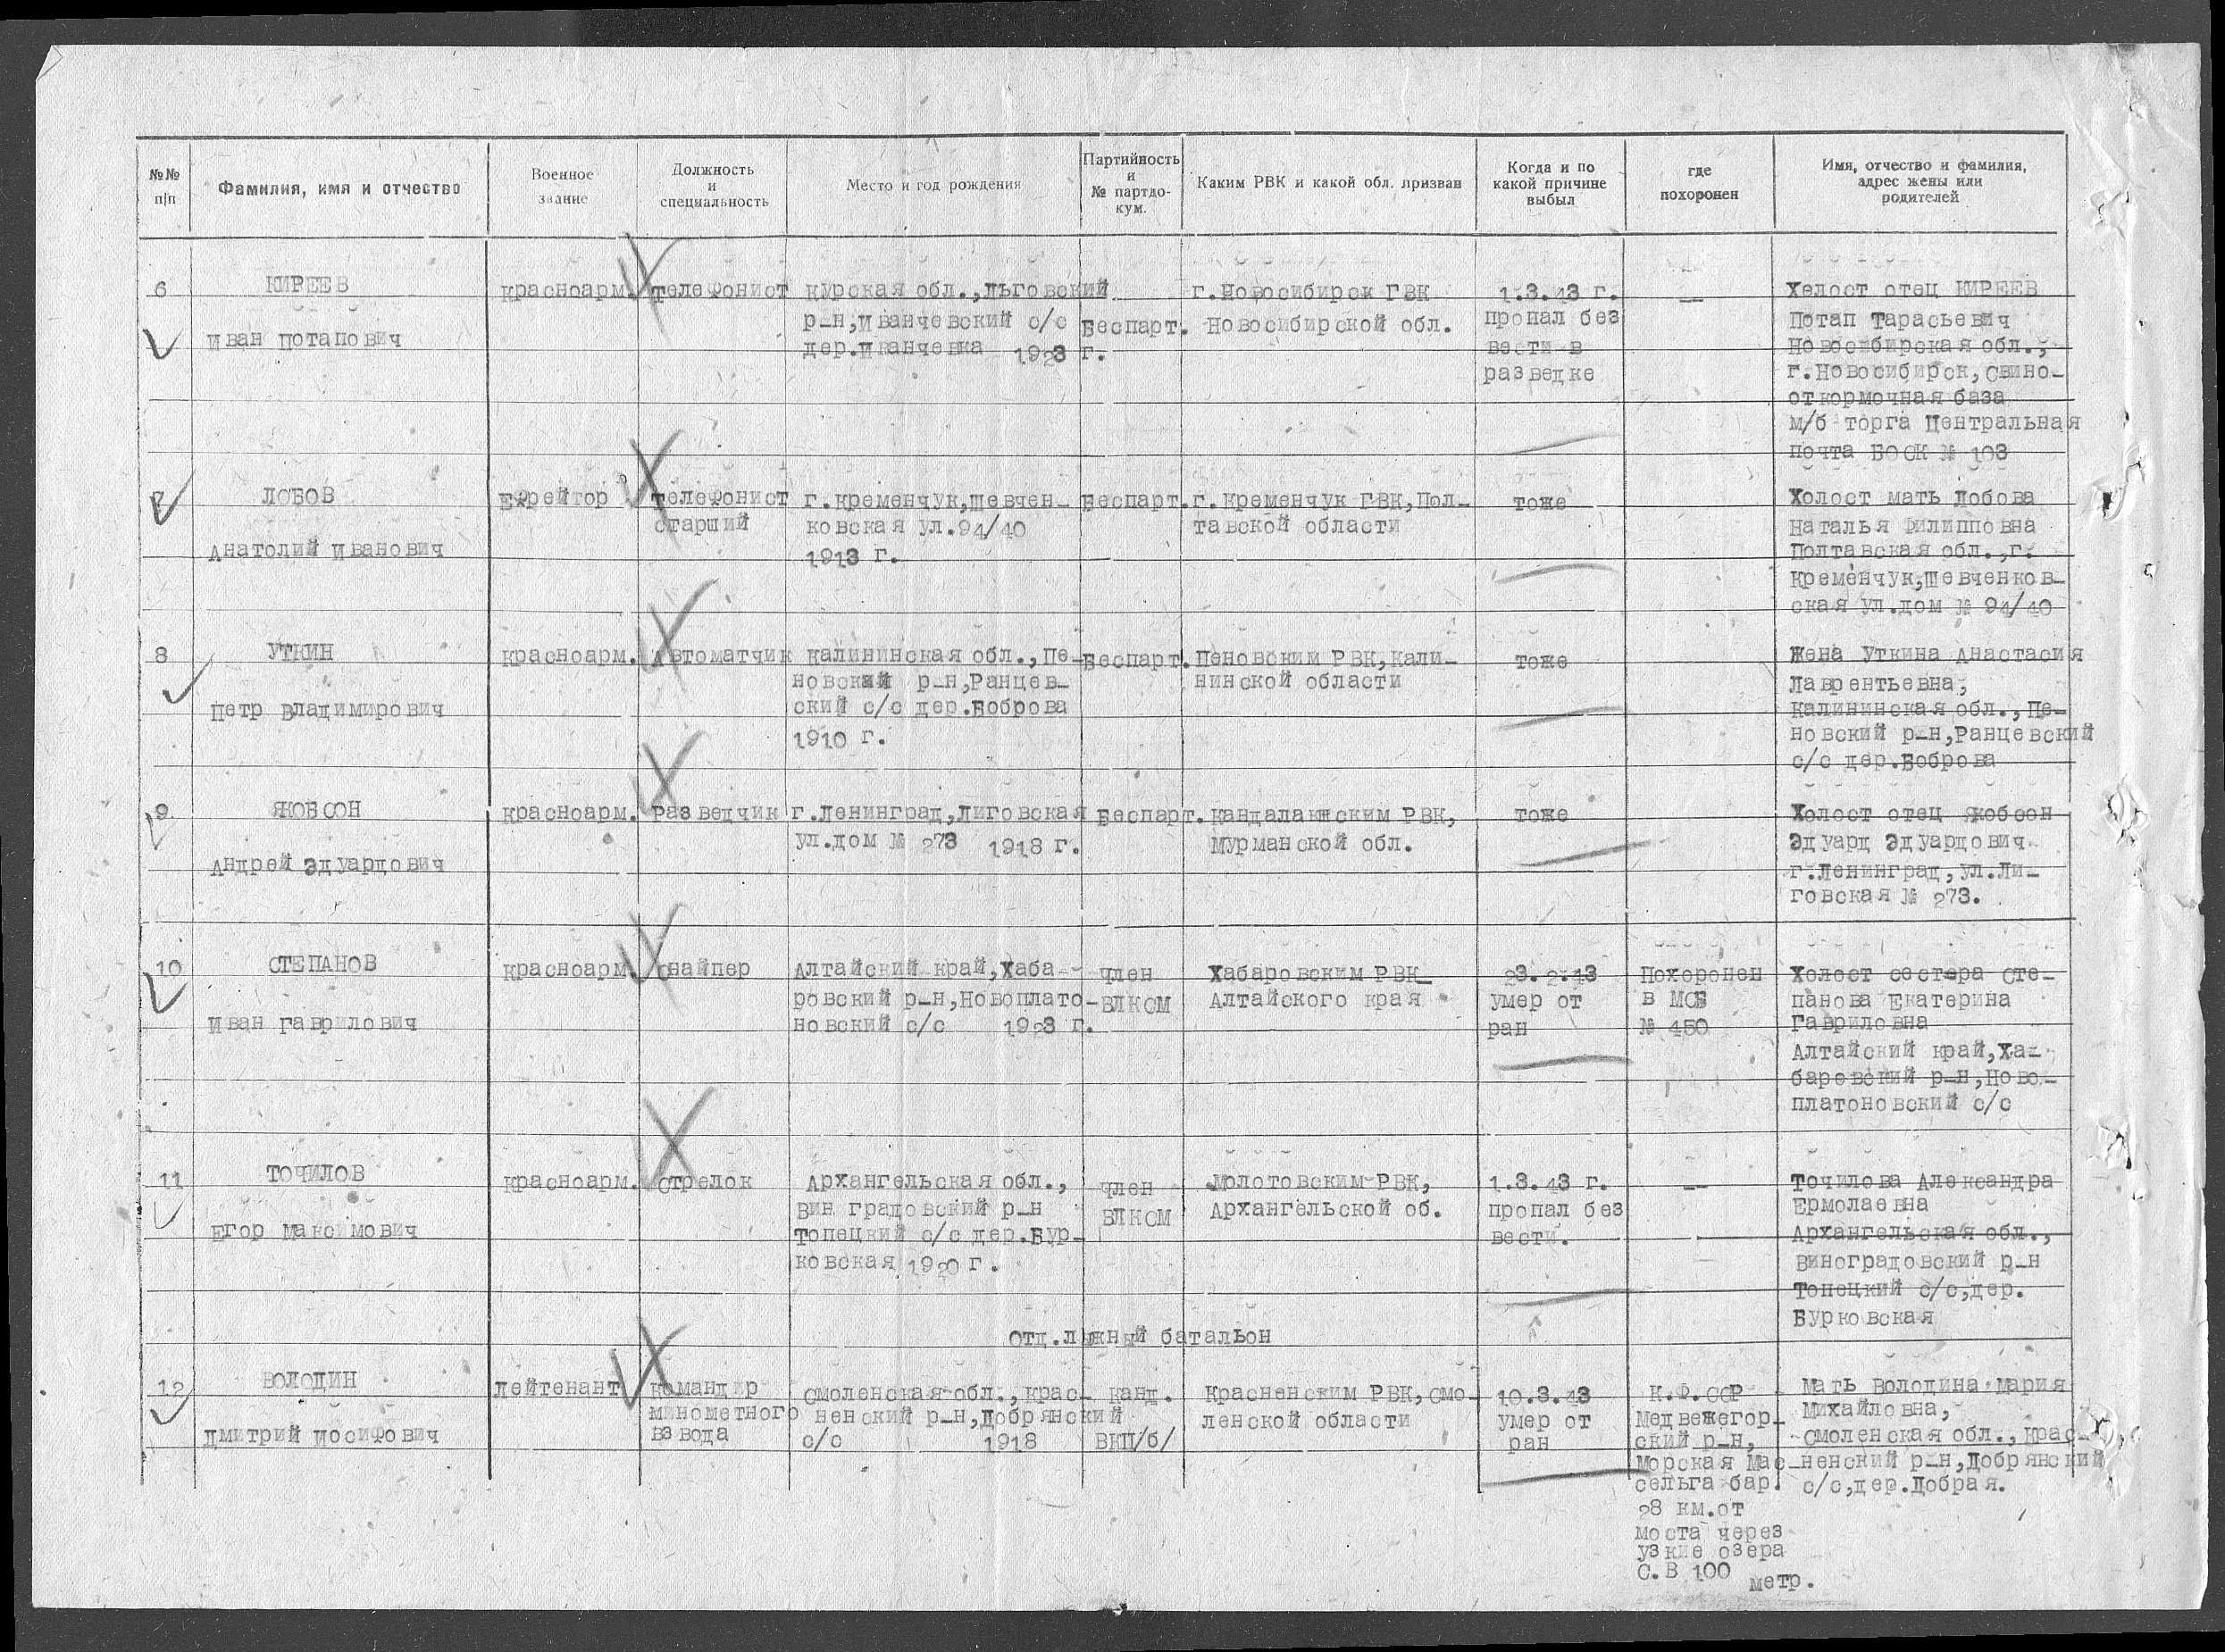 №№ п/п
Фамилия, имя и отчество
Военное звание
Должность и специальность
Место и год рождения
Партийность и № партдокум.
Каким РВК и какой обл. призван
Когда и по какой причине выбыл
где похоронен
Имя, отчество и фамилия, адрес жены или родителей
6
КИРЕЕВ
Иван Потапович
красноарм.
телефонист
Курская обл.,Льговский
р-н,Иванчевский с/с
дер.Иванчевка 1923 г.
Беспарт.
г.Новосибирск ГВК
Новосибирской обл.
1.3.43 г.
пропал без
вести в
разведке
—
Холост отец КИРЕЕВ
Потап Тарасьевич
Новосибирская обл.,
г.Новосибирск,Свино-
откормочная база
м/б торга Центральная
почта БОСК № 103
7
ЛОБОВ
Анатолий Иванович
Ефрейтор
телефонист
старший
г.Кременчук,Шевчен-
ковская ул.94/40
1913 г.
Беспарт.
г.Кременчук ГВК,Пол-
тавской области
тоже
Холост мать Лобова
Наталья Филипповна
Полтавская обл.,г.
Кременчук,Шевченков-
ская ул.дом № 94/40
8
УТКИН
Петр Владимирович
красноарм.
Автоматчик
Калининская обл.,Пе-
новский р-н,Ранцев-
ский с/с дер.Боброва
1910 г.
Беспарт.
Пеновским РВК,Кали-
нинской области
тоже
Жена Уткина Анастасия
Лаврентьевна,
Калининская обл.,Пе-
новский р-н,Ранцевский
с/с дер.Боброва
9
ЯКОБСОН
Андрей Эдуардович
красноарм.
Разведчик
г.Ленинград,Лиговская
ул.дом № 273 1918 г.
Беспарт.
Кандалакшским РВК,
Мурманской обл.
тоже
Холост отец Якобсон
Эдуард Эдуардович
г.Ленинград,ул.Ли-
говская № 273.
10
СТЕПАНОВ
Иван Гаврилович
красноарм.
снайпер
Алтайский край,Хаба-
ровский р-н,Новоплато-
новский с/с 1923 г.
член
ВЛКСМ
Хабаровским РВК
Алтайского края
23.2.43
умер от
ран
Похоронен
в МСБ
№ 450
Холост сестера Сте-
панова Екатерина
Гавриловна
Алтайский край,Ха-
баровский р-н,Ново-
платоновский с/с
11
ТОЧИЛОВ
Егор Максимович
красноарм.
стрелок
Архангельская обл.,
Вин градовский р-н
Топецкий с/с дер.Бур-
ковская 1920 г.
член
ВЛКСМ
Молотовским РВК,
Архангельской об.
1.3.43 г.
пропал без
вести.
—
Точилова Александра
Ермолаевна
Архангельская обл.,
Виноградовский р-н
Топецкий с/с,дер.
Бурковская
Отд.лыжный батальон
12
ВОЛОДИН
Дмитрий Иосифович
лейтенант
командир
минометного
взвода
Смоленская обл.,Крас-
ненский р-н,Добрянский
с/с 1918
канд.
ВКП/б/
Красненским РВК,Смо-
ленской области
10.3.43
умер от
ран
К.Ф.ССР
Медвежегор-
ский р-н,
Морская Мас-
сельга бар.
28 км.от
моста через
узкие озера
С.В 100
метр.
Мать Володина Мария
Михайловна,
Смоленская обл.,Крас-
ненский р-н,Добрянский
с/с,дер.Добрая.